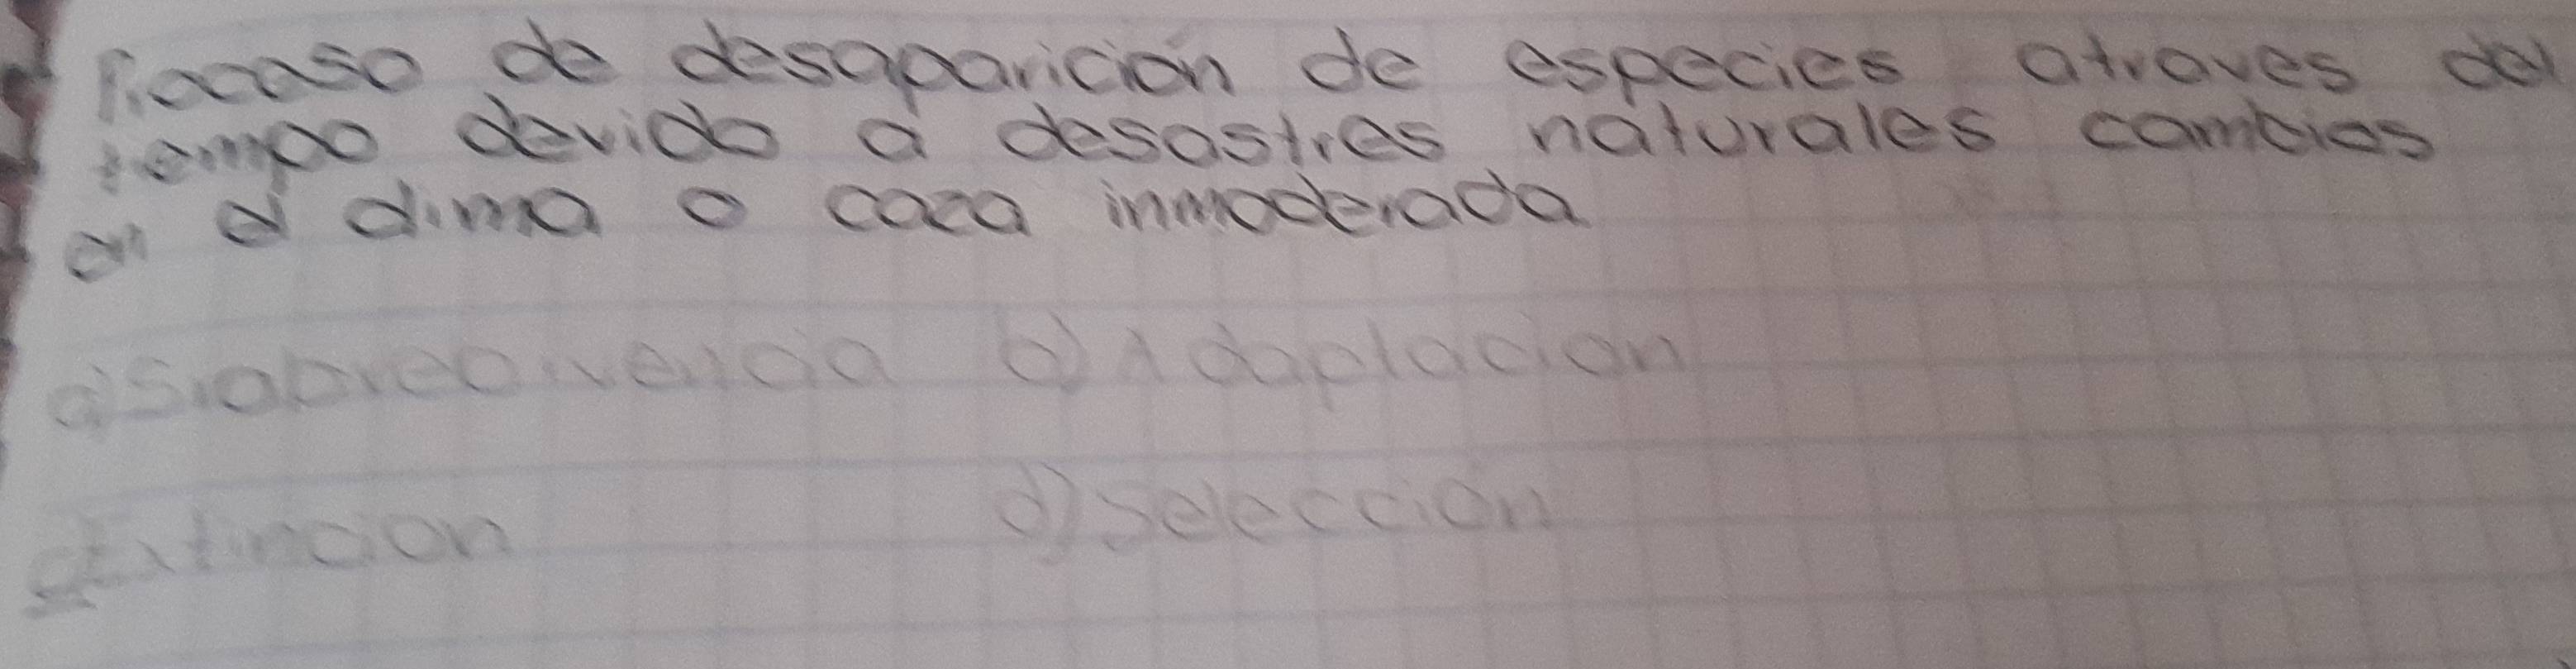 Procaso de desaparición de especies atraves del
tiempo devido a desastres naturales cambios
en el clima o caza inmoderada
a) b) Adaptacion
c) Extincion d) Selección